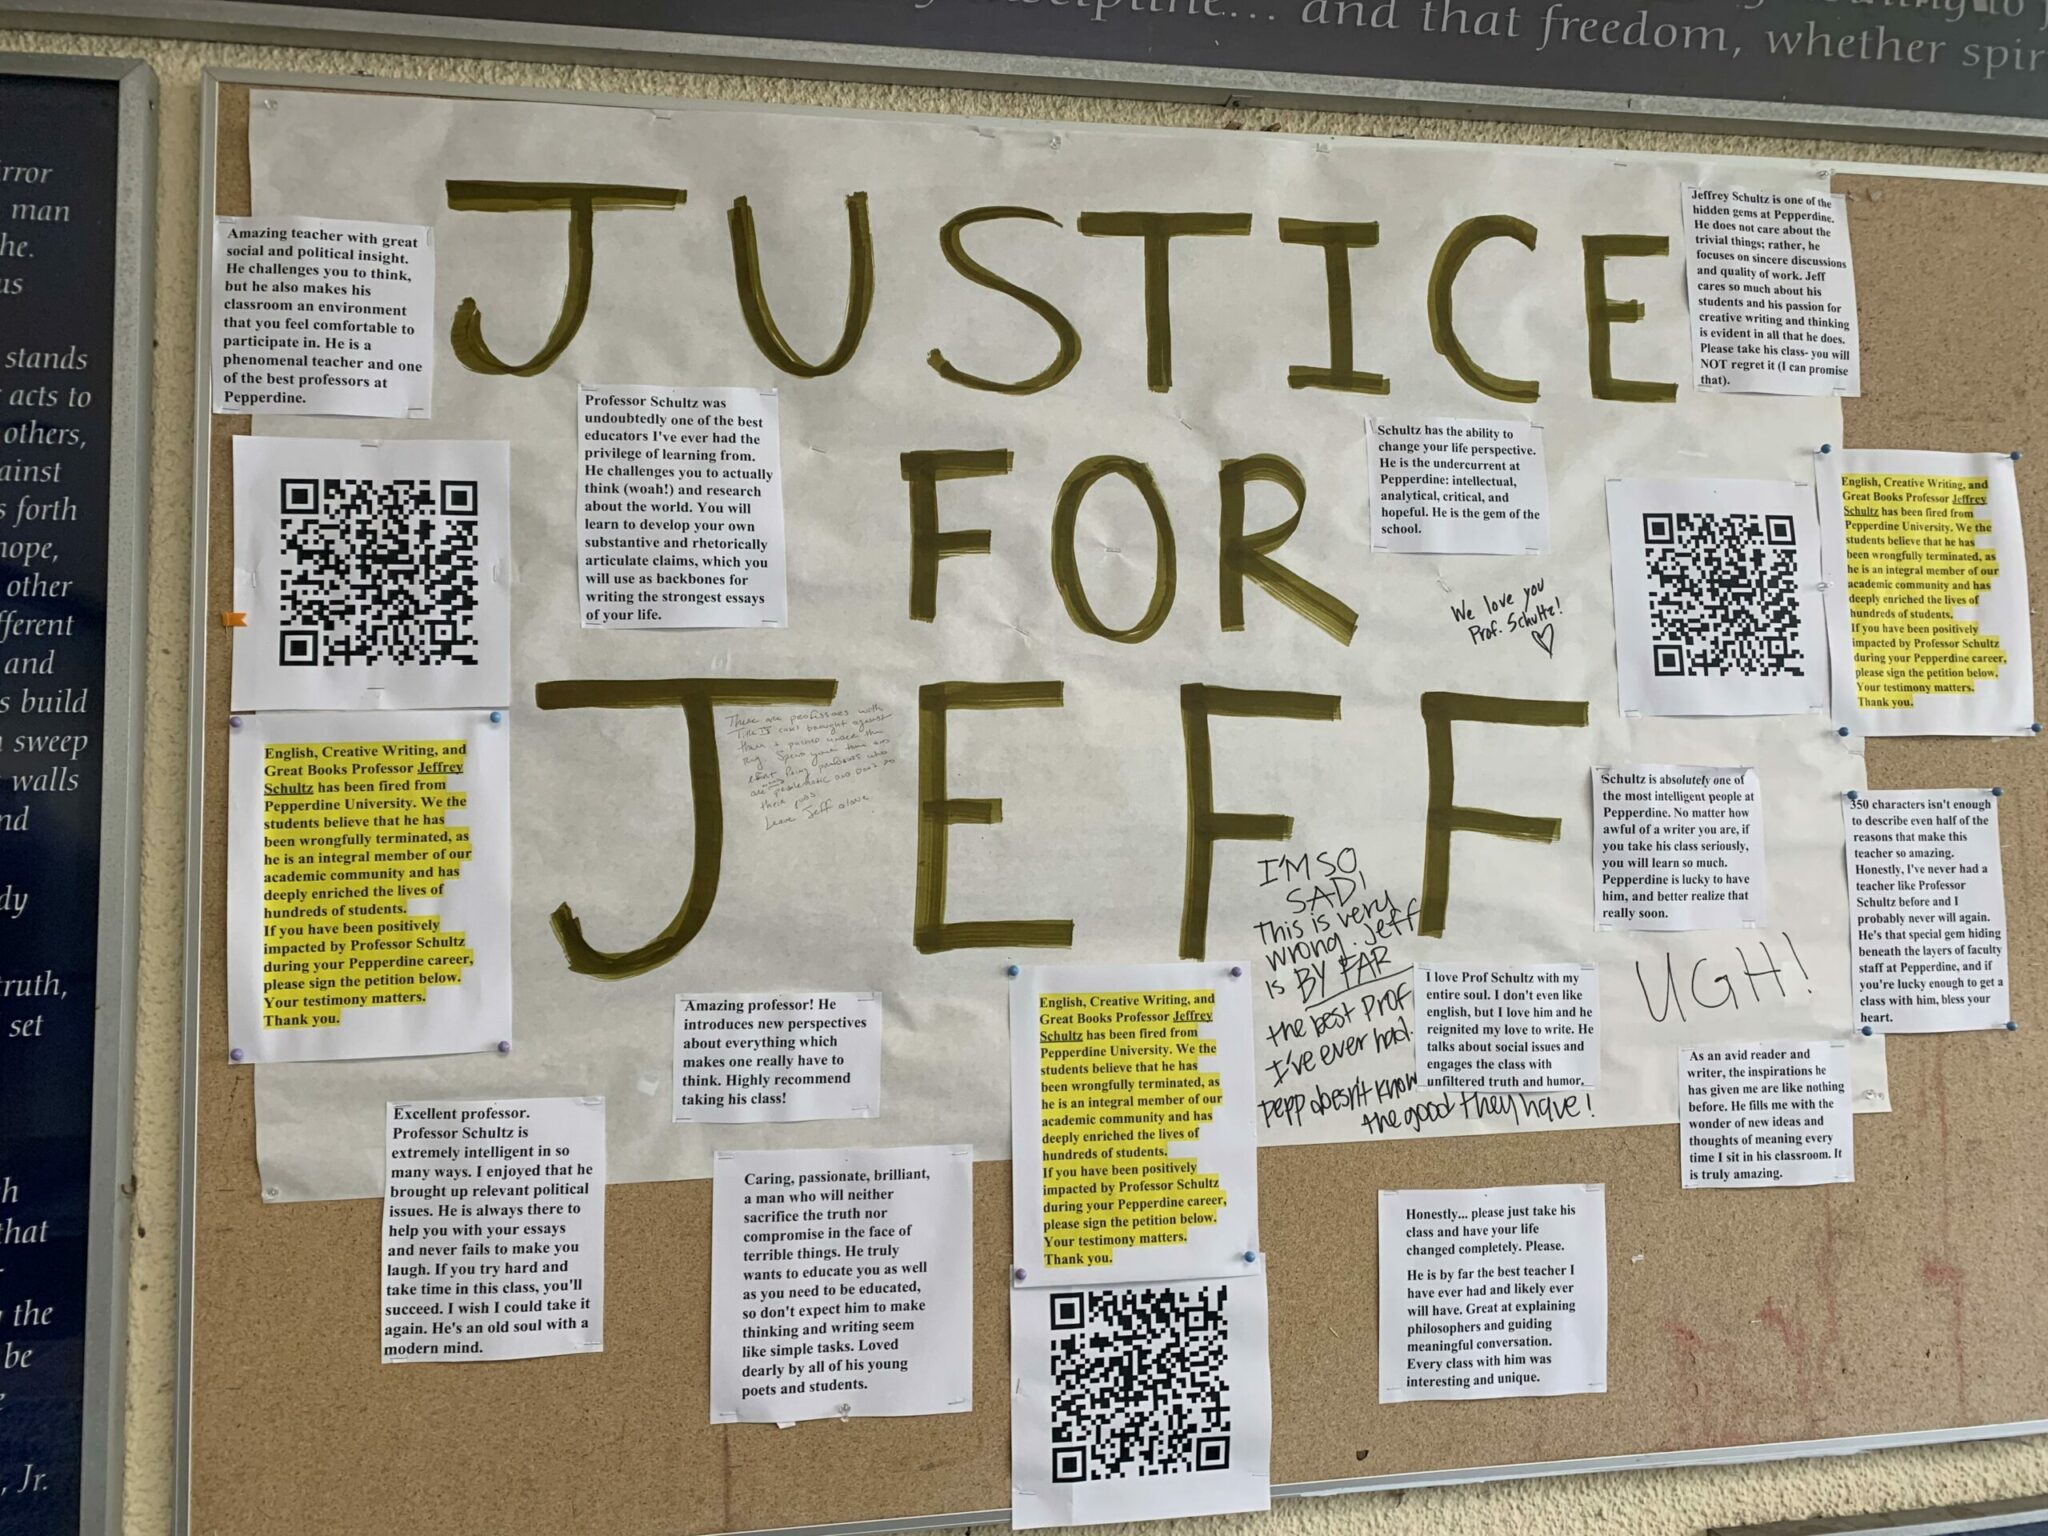 discipline... and that freedom, whether spir
rror
man
he.
us
stands
acts to
others,
ainst
s forth
hope,
other
fferent
and
s build
sweep
walls
nd
dy
truth,
set
h
that
the
be
, Jr.
JUSTICE
FOR
JEFF
Amazing teacher with great
social and political insight.
He challenges you to think,
but he also makes his
classroom an environment
that you feel comfortable to
participate in. He is a
phenomenal teacher and one
of the best professors at
Pepperdine.
Professor Schultz was
undoubtedly one of the best
educators I've ever had the
privilege of learning from.
He challenges you to actually
think (woah!) and research
about the world. You will
learn to develop your own
substantive and rhetorically
articulate claims, which you
will use as backbones for
writing the strongest essays
of your life.
Schultz has the ability to
change your life perspective.
He is the undercurrent at
Pepperdine: intellectual,
analytical, critical, and
hopeful. He is the gem of the
school.
Jeffrey Schultz is one of the
hidden gems at Pepperdine.
He does not care about the
trivial things; rather, he
focuses on sincere discussions
and quality of work. Jeff
cares so much about his
students and his passion for
creative writing and thinking
is evident in all that he does.
Please take his class- you will
NOT regret it (I can promise
that).
We love you
Prof. Schultz!
English, Creative Writing, and
Great Books Professor Jeffrey
Schultz has been fired from
Pepperdine University. We the
students believe that he has
been wrongfully terminated, as
he is an integral member of our
academic community and has
deeply enriched the lives of
hundreds of students.
If you have been positively
impacted by Professor Schultz
during your Pepperdine career,
please sign the petition below.
Your testimony matters.
Thank you.
English, Creative Writing, and
Great Books Professor Jeffrey
Schultz has been fired from
Pepperdine University. We the
students believe that he has
been wrongfully terminated, as
he is an integral member of our
academic community and has
deeply enriched the lives of
hundreds of students.
If you have been positively
impacted by Professor Schultz
during your Pepperdine career,
please sign the petition below.
Your testimony matters.
Thank you.
There are professors with
Title IX cases brought against
them & pushed under the
rug. Spend your time and
effort firing professors who
are problematic and don't do
their jobs.
Leave Jeff alone.
I'M SO
SAD!
This is very
wrong. Jeff
is BY FAR
the best Prof
I've ever had.
Pepp doesn't know
the good they have!
Schultz is absolutely one of
the most intelligent people at
Pepperdine. No matter how
awful of a writer you are, if
you take his class seriously,
you will learn so much.
Pepperdine is lucky to have
him, and better realize that
really soon.
350 characters isn't enough
to describe even half of the
reasons that make this
teacher so amazing.
Honestly, I've never had a
teacher like Professor
Schultz before and I
probably never will again.
He's that special gem hiding
beneath the layers of faculty
staff at Pepperdine, and if
you're lucky enough to get a
class with him, bless your
heart.
UGH!
Amazing professor! He
introduces new perspectives
about everything which
makes one really have to
think. Highly recommend
taking his class!
English, Creative Writing, and
Great Books Professor Jeffrey
Schultz has been fired from
Pepperdine University. We the
students believe that he has
been wrongfully terminated, as
he is an integral member of our
academic community and has
deeply enriched the lives of
hundreds of students.
If you have been positively
impacted by Professor Schultz
during your Pepperdine career,
please sign the petition below.
Your testimony matters.
Thank you.
I love Prof Schultz with my
entire soul. I don't even like
english, but I love him and he
reignited my love to write. He
talks about social issues and
engages the class with
unfiltered truth and humor.
As an avid reader and
writer, the inspirations he
has given me are like nothing
before. He fills me with the
wonder of new ideas and
thoughts of meaning every
time I sit in his classroom. It
is truly amazing.
Excellent professor.
Professor Schultz is
extremely intelligent in so
many ways. I enjoyed that he
brought up relevant political
issues. He is always there to
help you with your essays
and never fails to make you
laugh. If you try hard and
take time in this class, you'll
succeed. I wish I could take it
again. He's an old soul with a
modern mind.
Caring, passionate, brilliant,
a man who will neither
sacrifice the truth nor
compromise in the face of
terrible things. He truly
wants to educate you as well
as you need to be educated,
so don't expect him to make
thinking and writing seem
like simple tasks. Loved
dearly by all of his young
poets and students.
Honestly... please just take his
class and have your life
changed completely. Please.
He is by far the best teacher I
have ever had and likely ever
will have. Great at explaining
philosophers and guiding
meaningful conversation.
Every class with him was
interesting and unique.